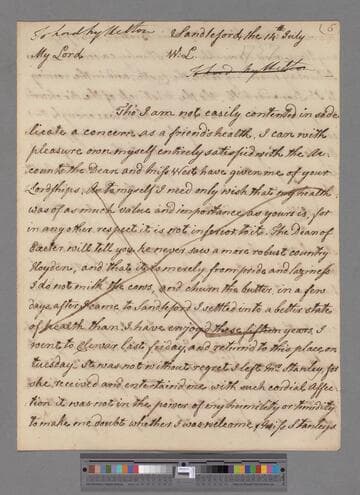 To Lord Lyttelton Sandleford the 14th July
My Lord W. L.
To Lord Lyttelton
Tho' I am not easily contented in so de
licate a concern as a friends health, I can with
pleasure own myself entirely satisfied with the Ac
counts the Dean and Miss West have given me of your
Lordships. As to myself I need only wish that my health
was of as much value and importance as yours is, for
in any other respect it is not inferior to it. The Dean of
Exeter will tell you he never saw a more robust country
Hoyden, and that it is merely from pride and laziness
I do not milk the cows, and churn the butter, in a few
days after I came to Sandleford I settled into a better state
of health than I have enjoy'd these fifteen years, I
went to Clewer last friday, and returned to this place on
tuesday. It was not without regret I left Mrs Stanley, for
she received and entertained me with such cordial Affec
tion it was not in the power of my humility or timidity
to make me doubt whether I was welcome, Miss Stanleys